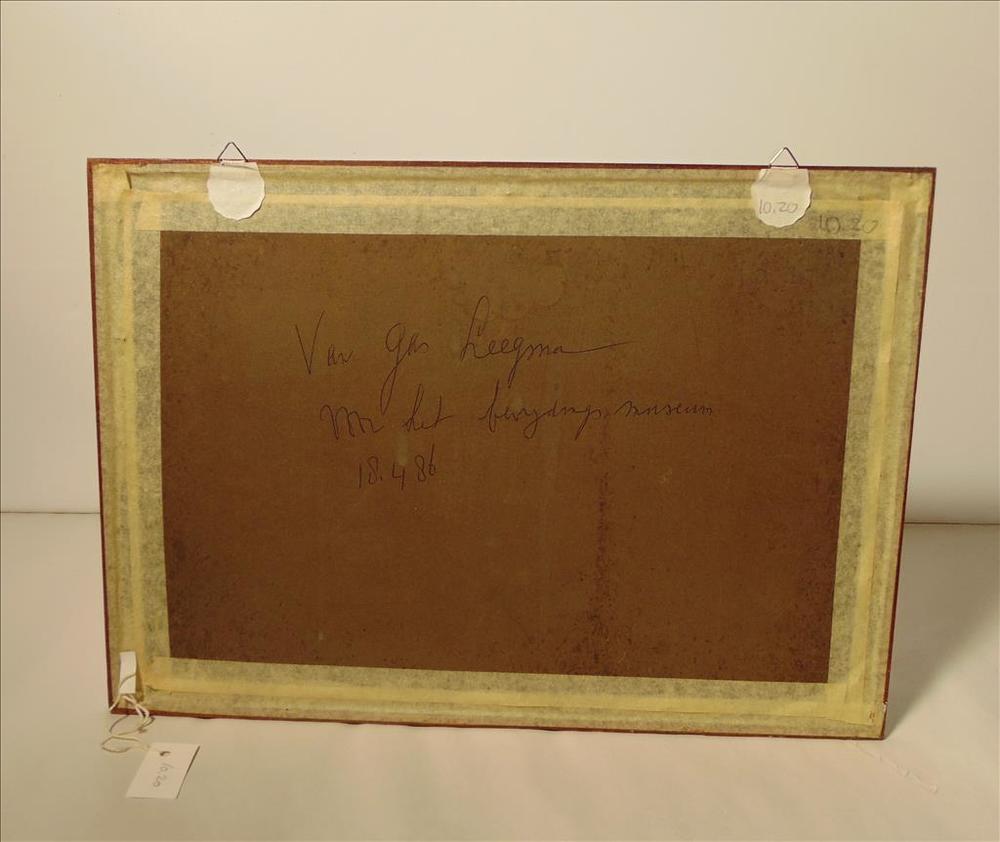 10.20
10.20
Van Gas Leegma
Voor het bevrydings museum
18.4 86
10.20